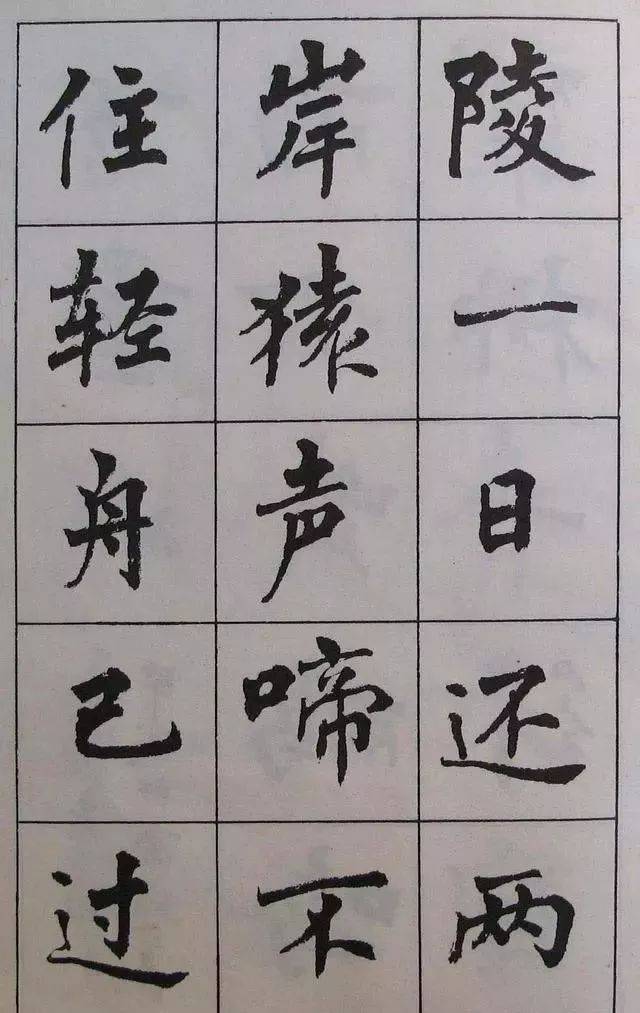 陵一日还两
岸猿声啼不
住轻舟已过